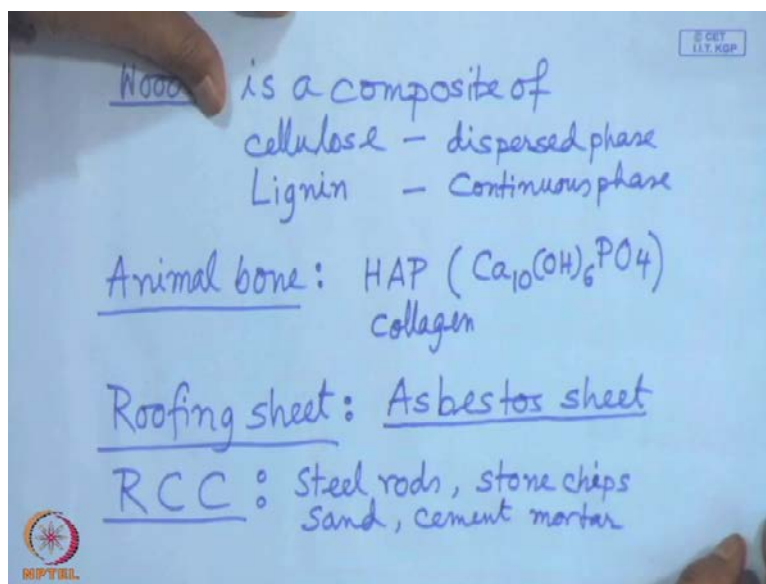 © CET
I.I.T. KGP
Wood is a composite of
cellulose – dispersed phase
Lignin – Continuous phase
Animal bone : HAP ( Ca10(OH)6PO4)
Collagen
Roofing sheet : Asbestos sheet
RCC : Steel rods, stone chips
Sand, cement mortar
NPTEL